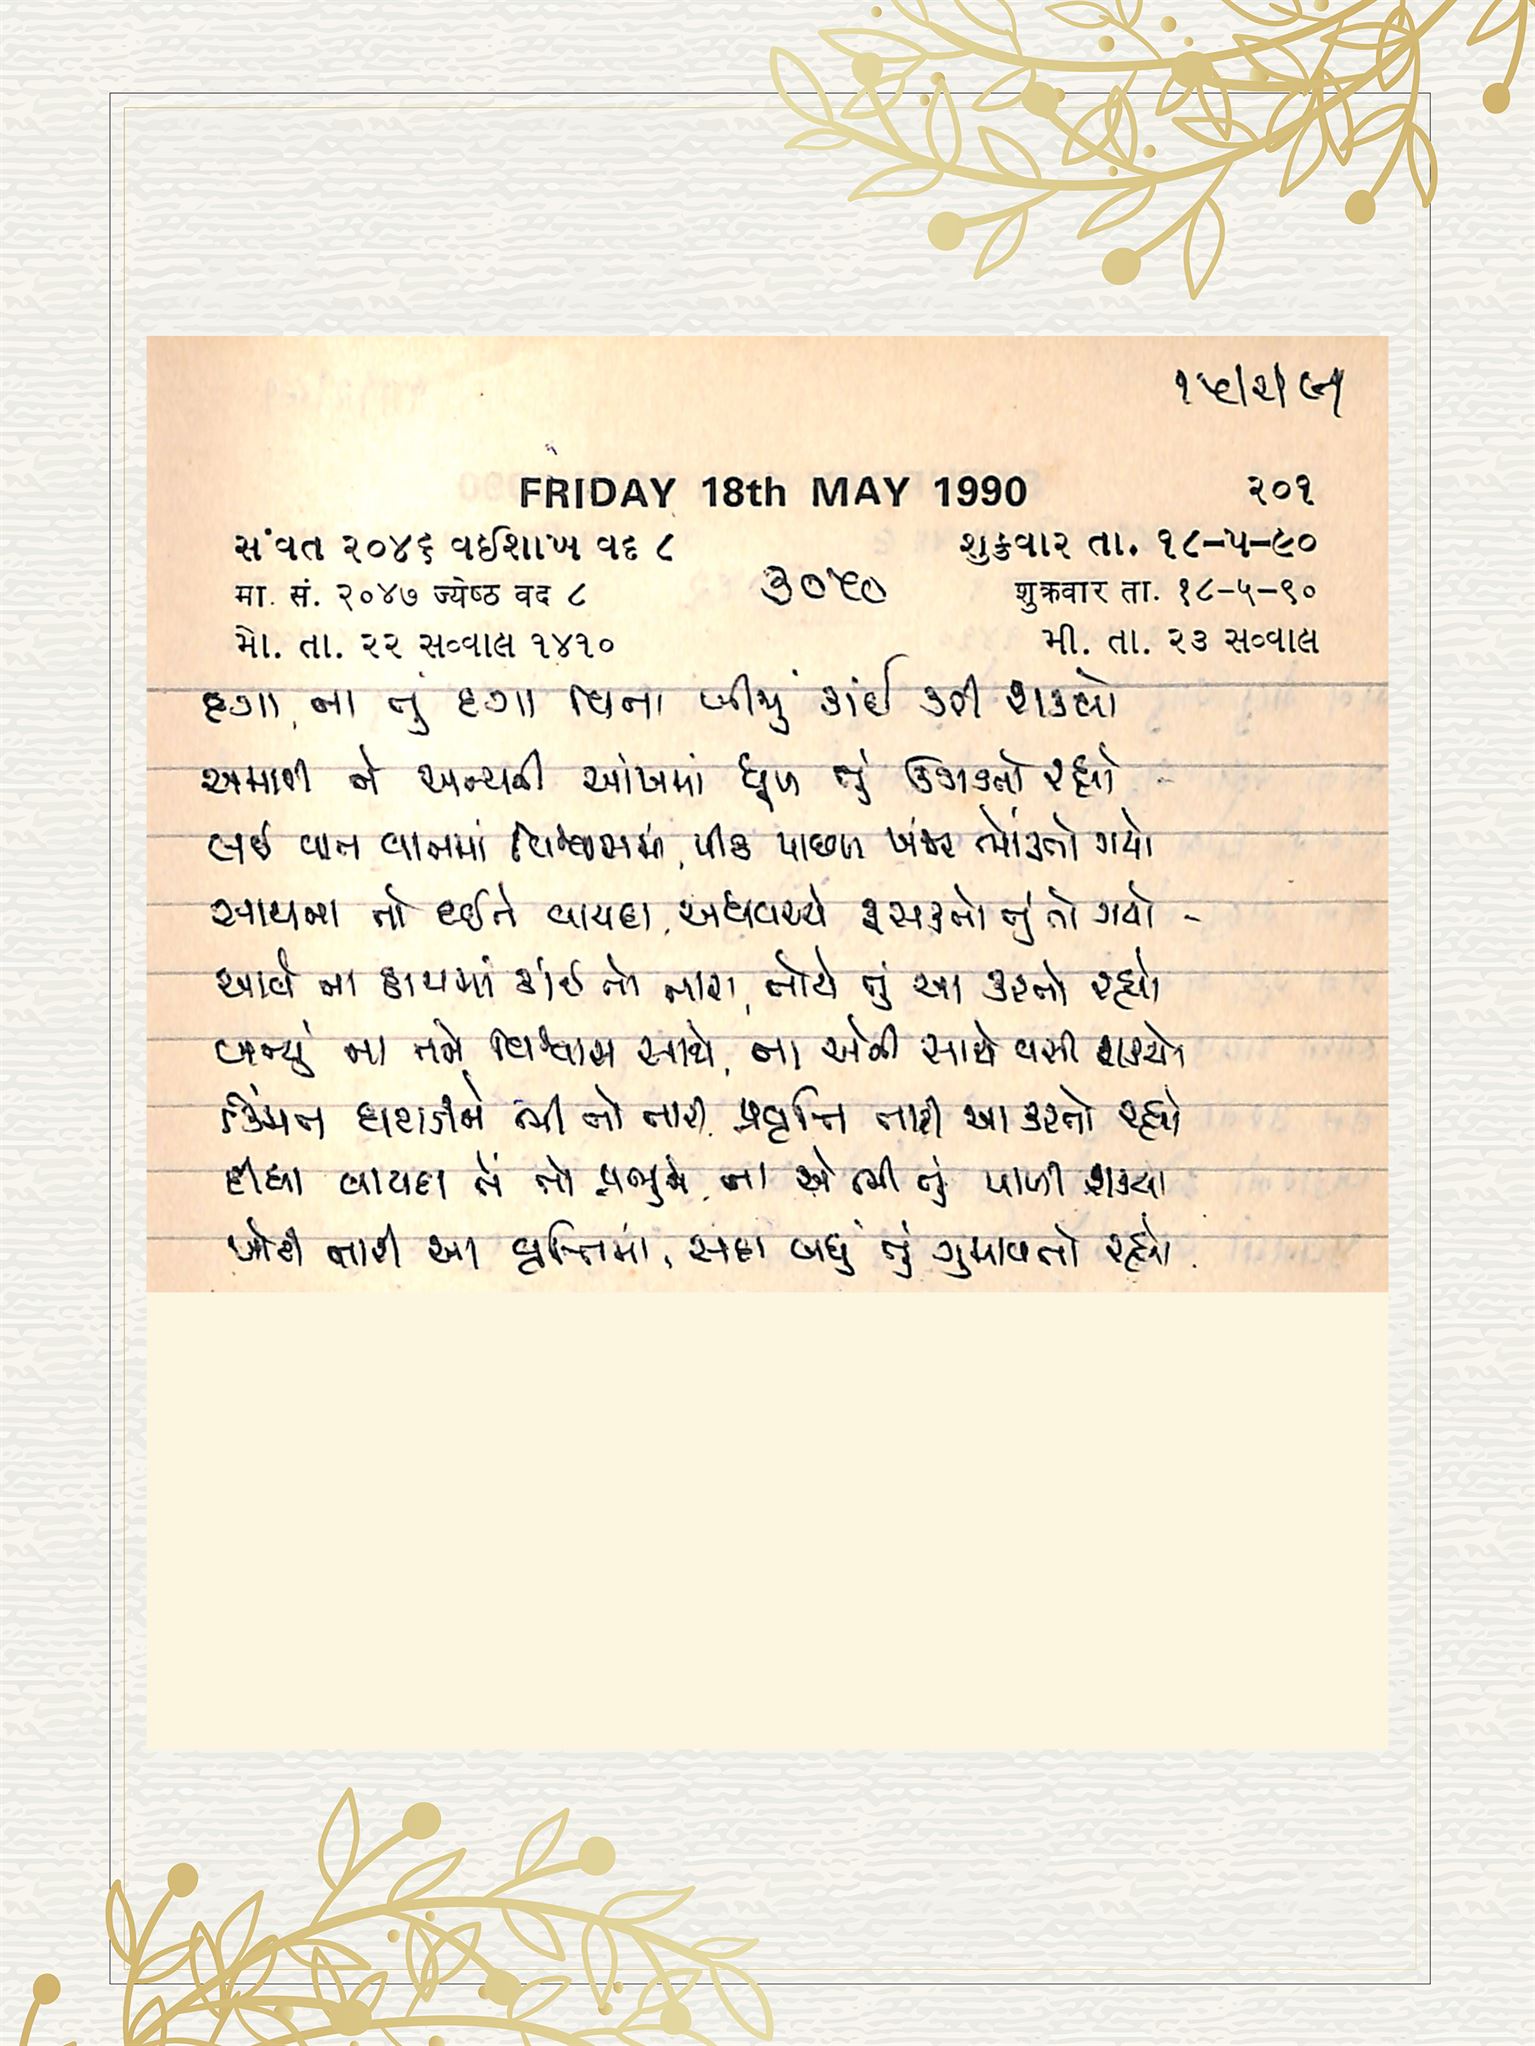 ૧૫/૨/૯૧
FRIDAY 18th MAY 1990 ૨૦૧
સંવત ૨૦૪૬ વઈશાખ વદ ૮ શુક્રવાર તા. ૧૮–૫–૯૦
मा. सं. २०४७ ज्येष्ठ वद ८ ૩૦૯૦ शुक्रवार ता. १८–५–९०
મો. તા. ૨૨ સવ્વાલ ૧૪૧૦ મી. તા. ૨૩ સવ્વાલ
દગા, ના તું દગા વિના બીજું કાંઈ કરી શક્યો
અમારી ને અન્યની આંખમાં ધૂળ તું ઉડાડતો રહ્યો
લઈ વાત વાતમાં વિશ્વાસમાં, પીઠ પાછળ ખંજર ભોંકતો ગયો
આપના તો દઈને વાયદા, અધવચ્ચે ખસકતો તું તો ગયો -
આવે ના હાથમાં કાંઈ તો તારા, તોયે તું આ કરતો રહ્યો
બન્યું ના તને વિશ્વાસ સાથે, ના એની સાથે વસી શક્યો
હિંમત ભી તો તારી, પ્રવૃત્તિ તારી આ કરતો રહ્યો
દીધા વાયદા તેં તો પ્રભુને, ના એ ભી તું પાળી શક્યો
ખોટી તારી આ વૃત્તિમાં, સદા બધું તું ગુમાવતો રહ્યો.